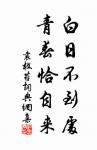 白日不到處
青春恰自來
袁枚苔詞典網集